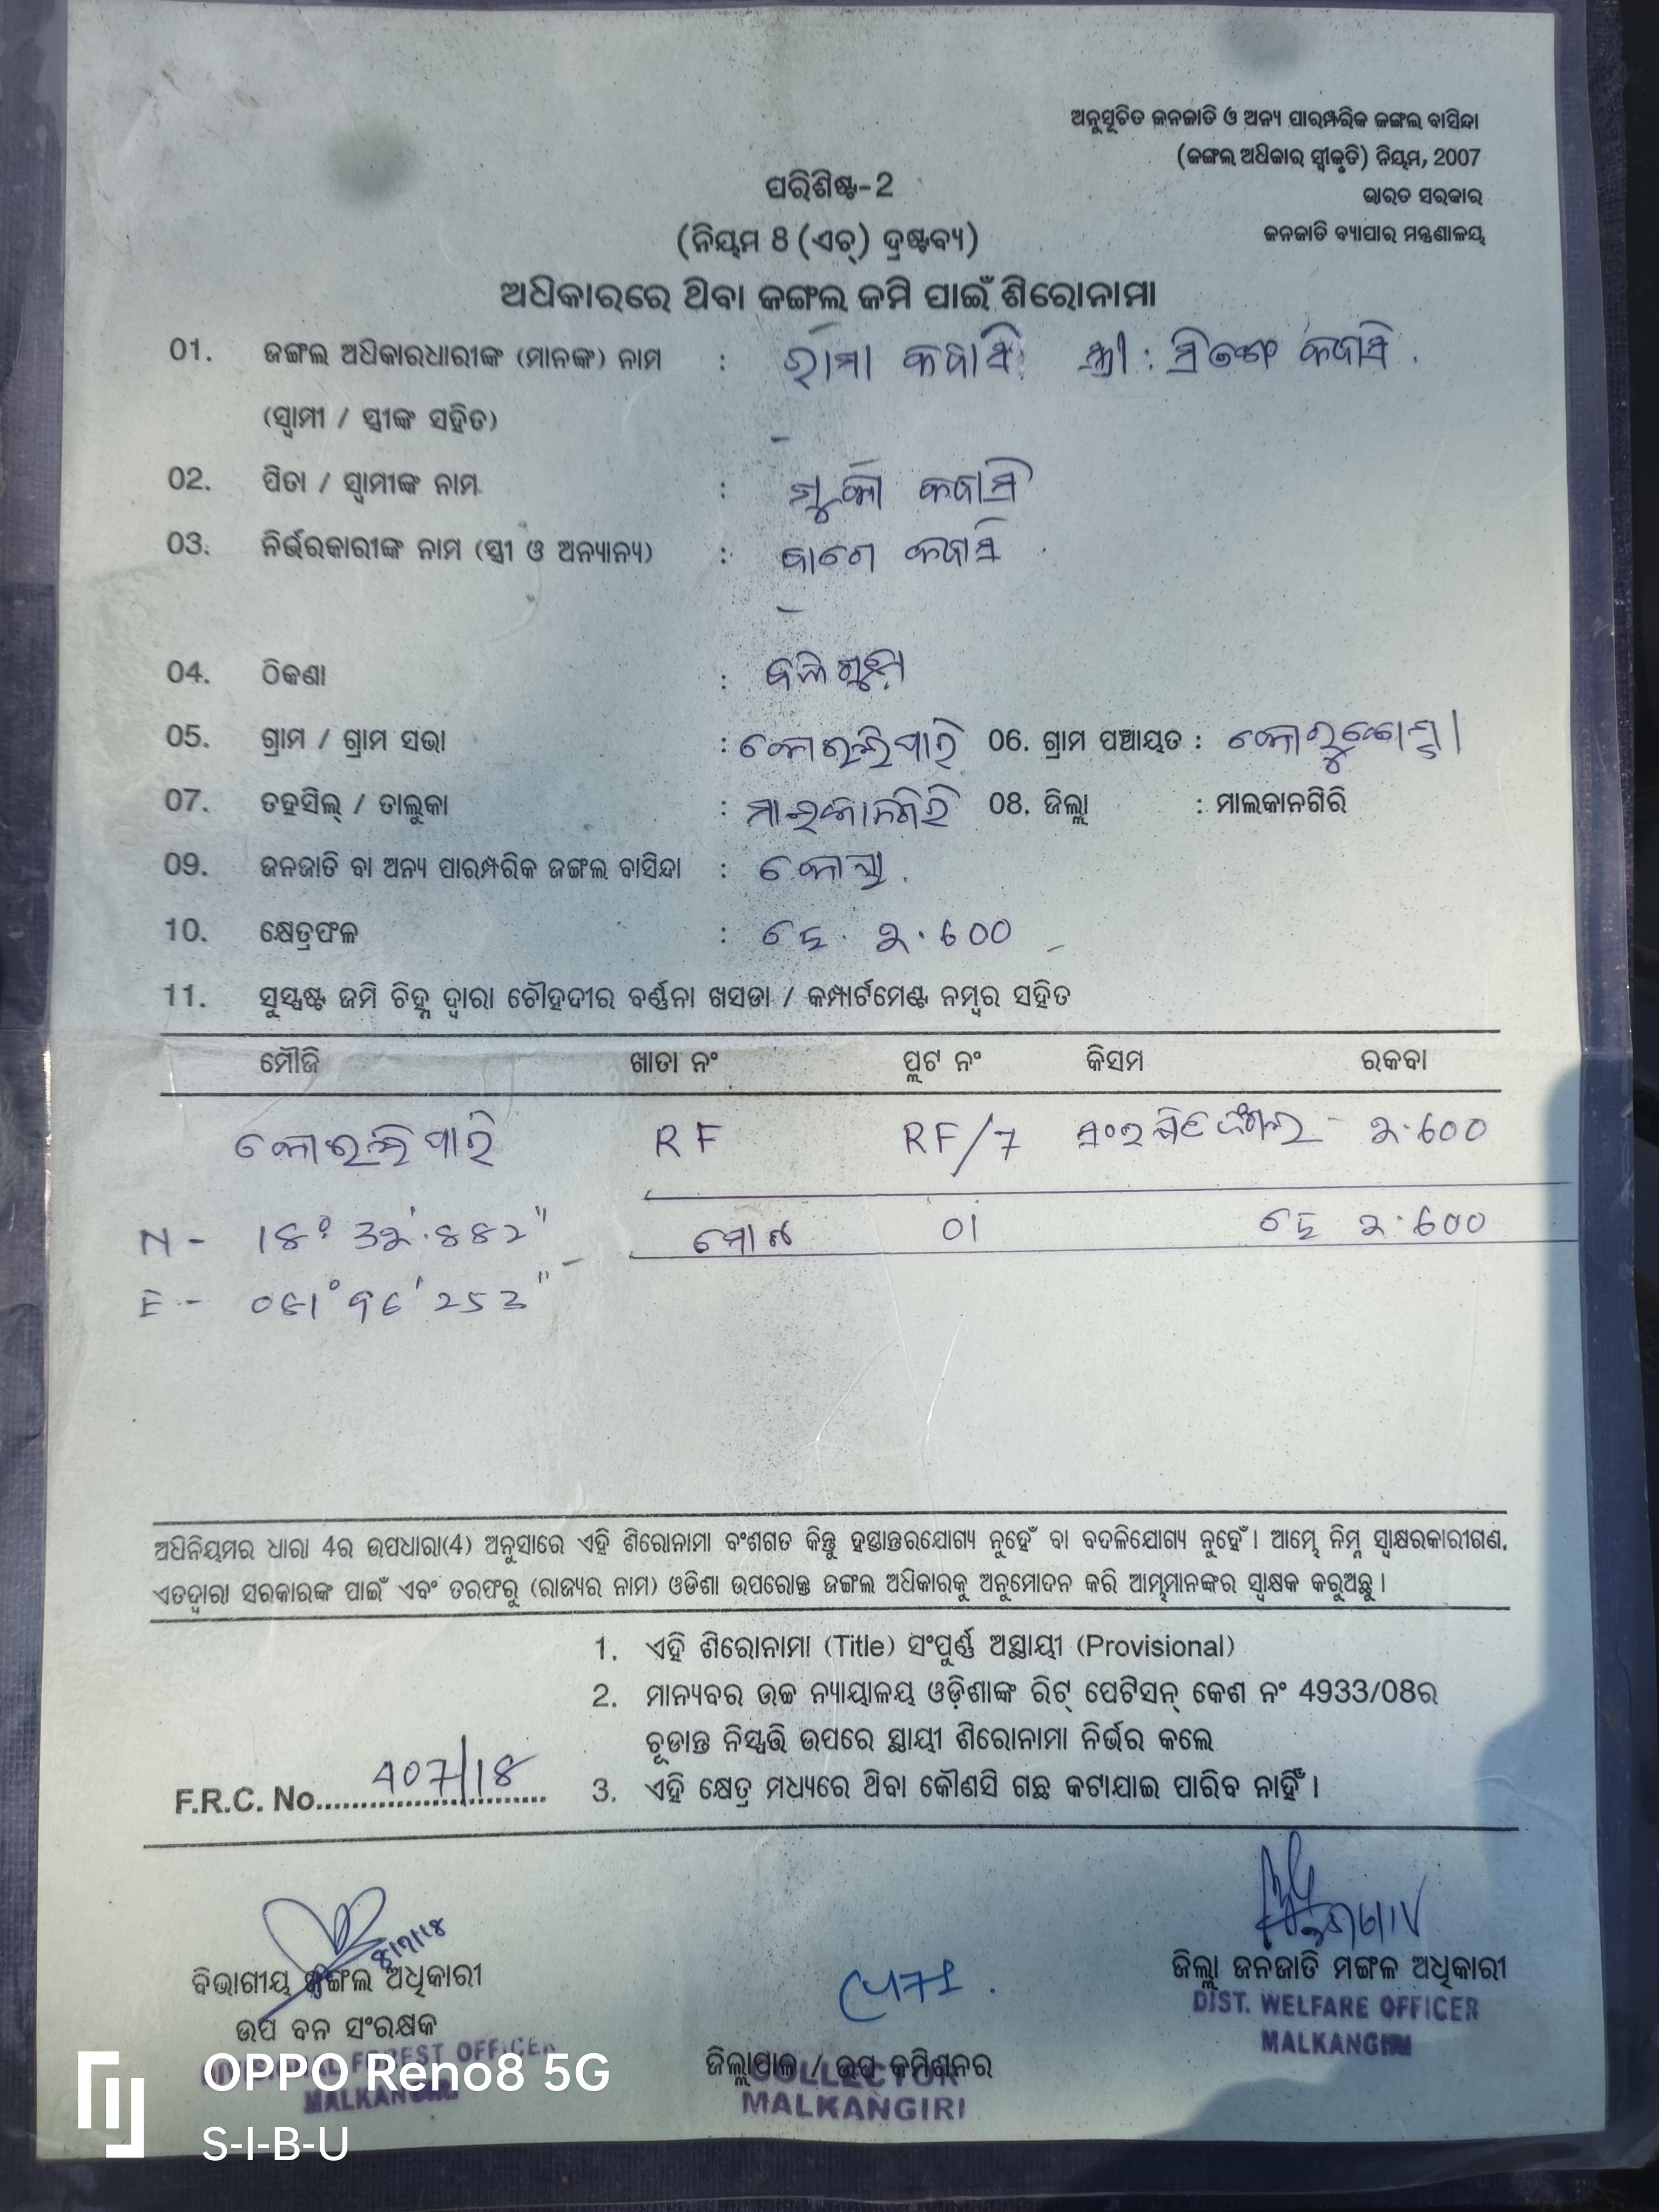 ଅନୁସୂଚିତ ଜନଜାତି ଓ ଅନ୍ୟ ପାରମ୍ପରିକ ଜଙ୍ଗଲ ବାସିନ୍ଦା
(ଜଙ୍ଗଲ ଅଧିକାର ସ୍ୱୀକୃତି) ନିୟମ, 2007
ଭାରତ ସରକାର
ଜନଜାତି ବ୍ୟାପାର ମନ୍ତ୍ରଣାଳୟ
ପରିଶିଷ୍ଟ-2
(ନିୟମ 8 (ଏଚ୍) ଦ୍ରଷ୍ଟବ୍ୟ)
ଅଧିକାରରେ ଥିବା ଜଙ୍ଗଲ ଜମି ପାଇଁ ଶିରୋନାମା
01. ଜଙ୍ଗଲ ଅଧିକାରଧାରୀଙ୍କ (ମାନଙ୍କ) ନାମ : ରାମା କବାସି ସ୍ତ୍ରୀ : କବାସି
(ସ୍ୱାମୀ / ସ୍ତ୍ରୀଙ୍କ ସହିତ)
02. ପିତା / ସ୍ୱାମୀଙ୍କ ନାମ : କବାସି
03. ନିର୍ଭରକାରୀଙ୍କ ନାମ (ସ୍ତ୍ରୀ ଓ ଅନ୍ୟାନ୍ୟ) : କବାସି
04. ଠିକଣା :
05. ଗ୍ରାମ / ଗ୍ରାମ ସଭା : 06. ଗ୍ରାମ ପଞ୍ଚାୟତ :
07. ତହସିଲ୍ / ତାଲୁକା : ମାଲକାନଗିରି 08. ଜିଲ୍ଲା : ମାଲକାନଗିରି
09. ଜନଜାତି ବା ଅନ୍ୟ ପାରମ୍ପରିକ ଜଙ୍ଗଲ ବାସିନ୍ଦା : କୋୟା
10. କ୍ଷେତ୍ରଫଳ : ହେ. ୨.600
11. ସୁସ୍ପଷ୍ଟ ଜମି ଚିହ୍ନ ଦ୍ୱାରା ଚୌହଦୀର ବର୍ଣ୍ଣନା ଖସଡା / କମ୍ପାର୍ଟମେଣ୍ଟ ନମ୍ବର ସହିତ
ମୌଜି ଖାତା ନଂ ପ୍ଲଟ ନଂ କିସମ ରକବା
RF RF/7 ସଂରକ୍ଷିତ ଜଙ୍ଗଲ ୨.600
ମୋଟ 01 ହେ ୨.600
ଅଧିନିୟମର ଧାରା 4ର ଉପଧାରା(4) ଅନୁସାରେ ଏହି ଶିରୋନାମା ବଂଶଗତ କିନ୍ତୁ ହସ୍ତାନ୍ତରଯୋଗ୍ୟ ନୁହେଁ ବା ବଦଳିଯୋଗ୍ୟ ନୁହେଁ। ଆମ୍ଭେ ନିମ୍ନ ସ୍ୱାକ୍ଷରକାରୀଗଣ,
ଏତଦ୍ୱାରା ସରକାରଙ୍କ ପାଇଁ ଏବଂ ତରଫରୁ (ରାଜ୍ୟର ନାମ) ଓଡିଶା ଉପରୋକ୍ତ ଜଙ୍ଗଲ ଅଧିକାରକୁ ଅନୁମୋଦନ କରି ଆମ୍ଭମାନଙ୍କର ସ୍ୱାକ୍ଷକ କରୁଅଛୁ।
1. ଏହି ଶିରୋନାମା (Title) ସଂପୂର୍ଣ୍ଣ ଅସ୍ଥାୟୀ (Provisional)
2. ମାନ୍ୟବର ଉଚ୍ଚ ନ୍ୟାୟାଳୟ ଓଡ଼ିଶାଙ୍କ ରିଟ୍ ପେଟିସନ୍ କେଶ ନଂ 4933/08ର
ଚୂଡାନ୍ତ ନିସ୍ପତ୍ତି ଉପରେ ସ୍ଥାୟୀ ଶିରୋନାମା ନିର୍ଭର କଲେ
F.R.C. No. 407/18
3. ଏହି କ୍ଷେତ୍ର ମଧ୍ୟରେ ଥିବା କୌଣସି ଗଛ କଟାଯାଇ ପାରିବ ନାହିଁ।
ବିଭାଗୀୟ ଜଙ୍ଗଲ ଅଧିକାରୀ
ଉପ ବନ ସଂରକ୍ଷକ
DIVISIONAL FOREST OFFICER
MALKANGIRI
ଜିଲ୍ଲାପାଳ / ଉପ କମିଶନର
COLLECTOR
MALKANGIRI
ଜିଲ୍ଲା ଜନଜାତି ମଙ୍ଗଳ ଅଧିକାରୀ
DIST. WELFARE OFFICER
MALKANGIRI
OPPO Reno8 5G
S-I-B-U